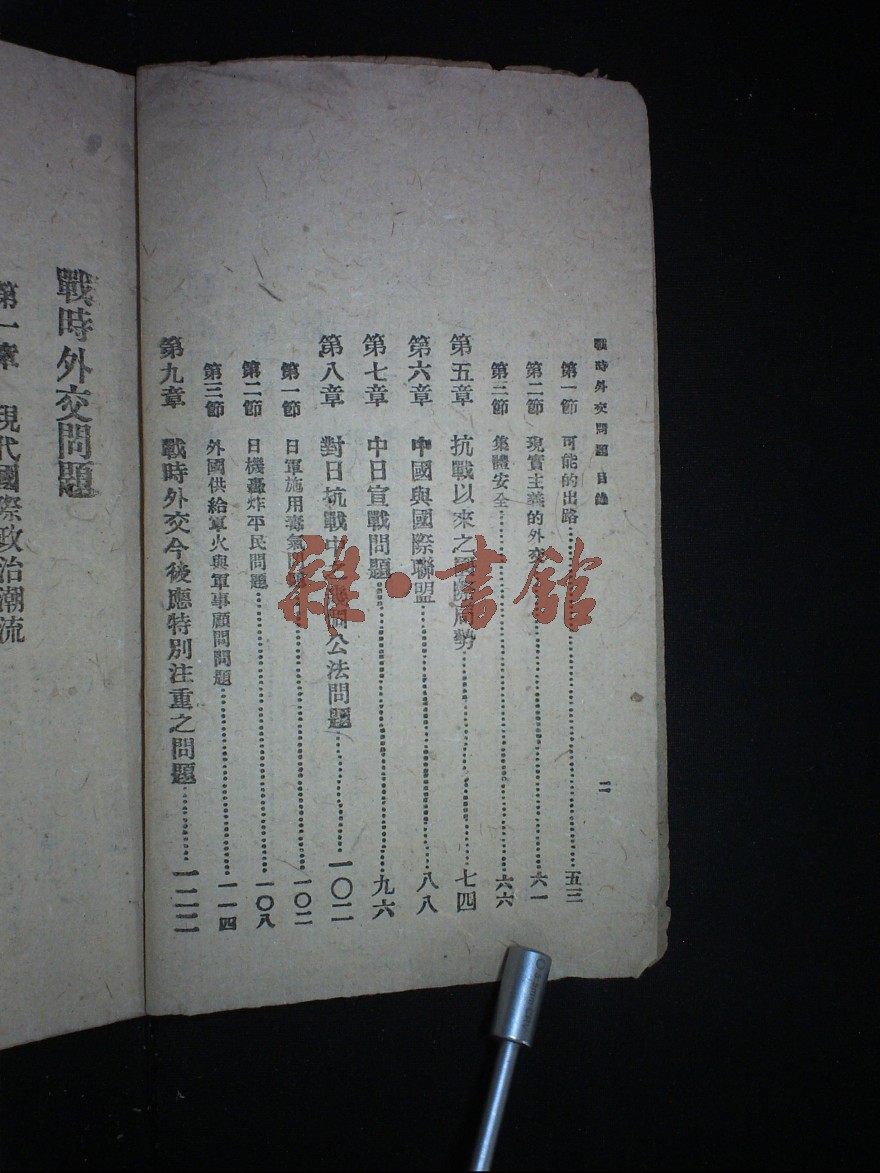 戰時外交問題 目錄 二
第一節 可能的出路……五三
第二節 現實主義的外交……六一
第三節 集體安全……六六
第五章 抗戰以來之國際局勢……七四
第六章 中國與國際聯盟……八八
第七章 中日宣戰問題……九六
第八章 對日抗戰中之 公法問題……一〇二
第一節 日軍施用毒氣問題……一〇二
第二節 日機轟炸平民問題……一〇八
第三節 外國供給軍火與軍事顧問問題……一一四
第九章 戰時外交今後應特別注重之問題……一二二
戰時外交問題
第一章 現代國際政治潮流
雜·書館